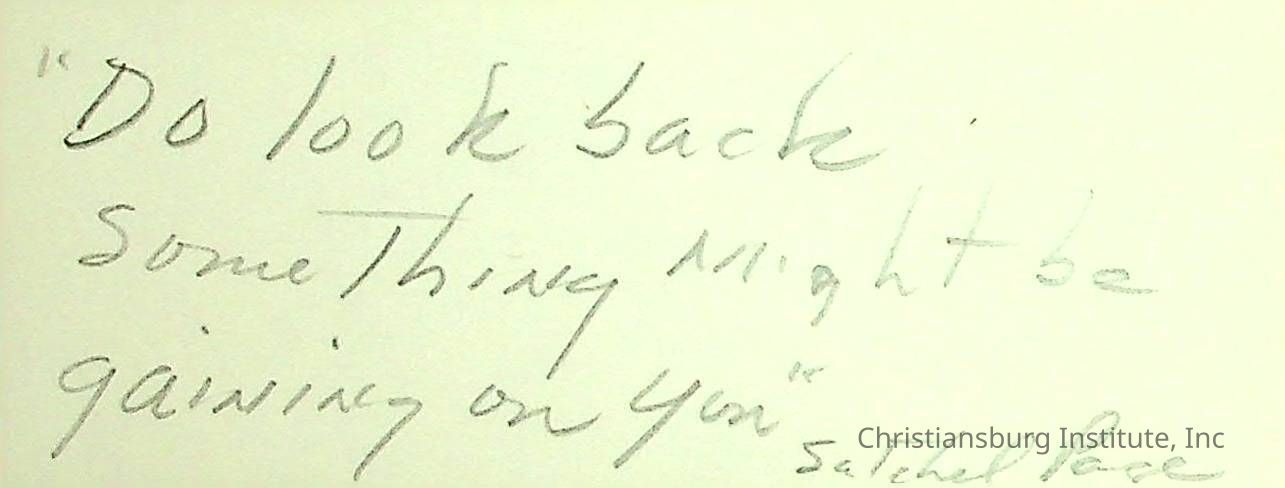 "Do look back
something might be
gaining on you"
Satchel Page
Christiansburg Institute, Inc